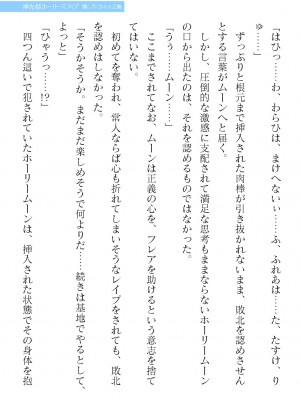 「はひっ……わ、わらひは、まけへないぃ……ふ、ふれあは……た、たすけ、り
ゅ……」
ずっぷりと根元まで挿入された肉棒が引き抜かれないまま、敗北を認めさせん
とする言葉がムーンへと届く。
しかし、圧倒的な激感に支配されて満足な思考もままならないホーリームーン
の口から出たのは、それを認めるものではなかった。
「うぅ……ムーン……」
ここまでされてなお、ムーンは正義の心を、フレアを助けるという意志を捨て
てはいない。
初めてを奪われ、常人ならば心も折れてしまいそうなレイプをされても、敗北
を認めはしなかった。
「そうかそうか。まだまだ楽しめそうで何よりだ……続きは基地でやるとして、
よっと」
「ひゃうっ……!?」
四つん這いで犯されていたホーリームーンは、挿入された状態でその身体を抱